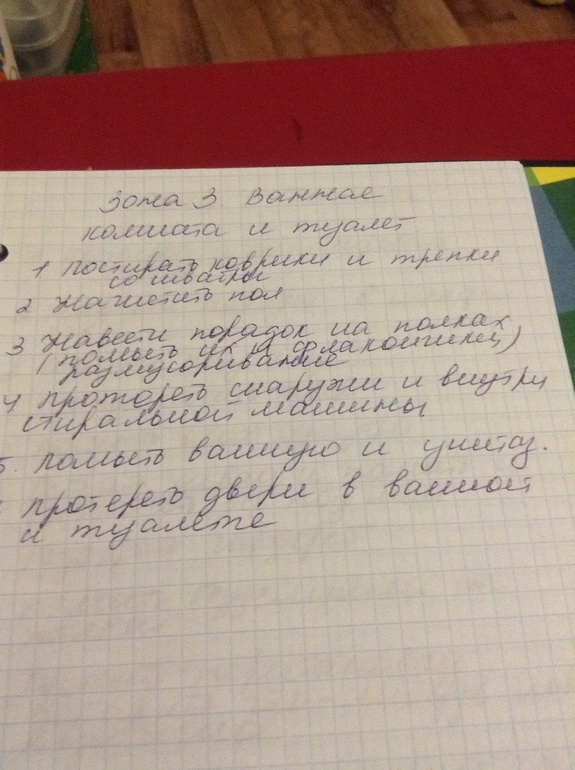 Зона 3 Ванная
комната и туалет
1 постирать коврики и трепки
со швабры
2 Начистить пол
3 Навести порядок на полках
(помыть их и флакончики)
размусоривание
4 протереть снаружи и внутри
стиральной машины
5. помыть ванную и унитаз.
протереть двери в ванной
и туалете